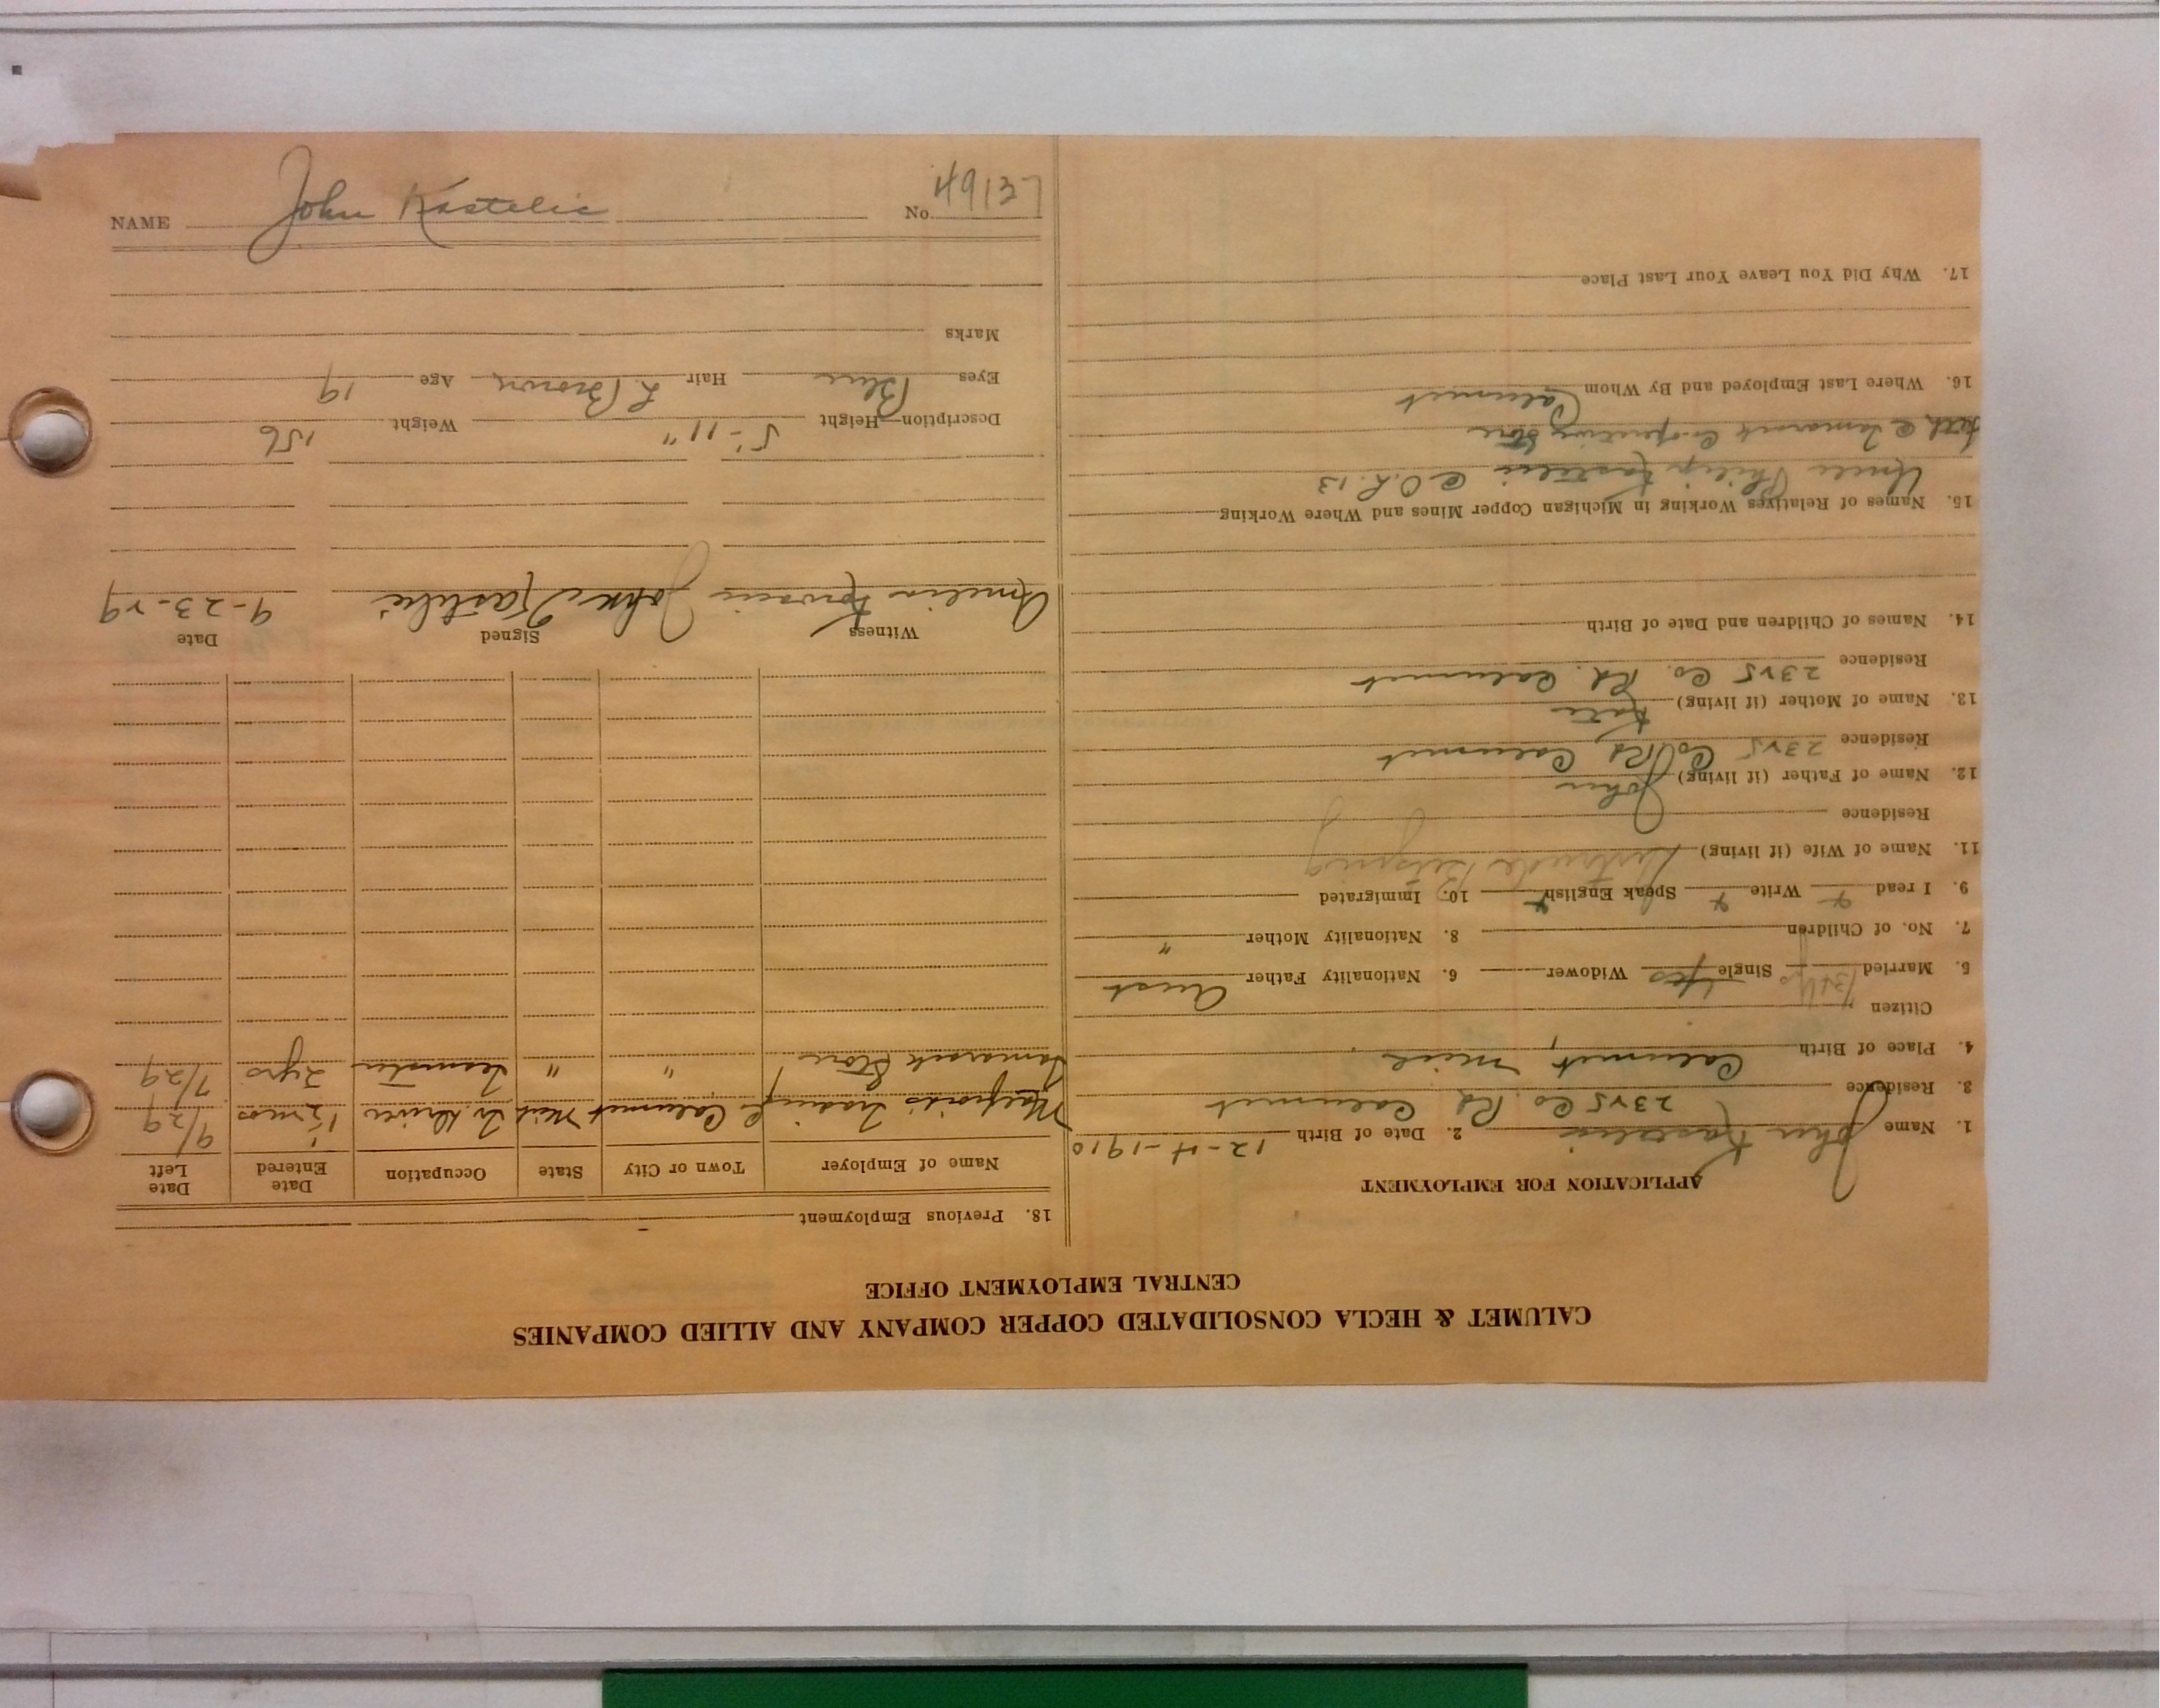 NAME John Kastelic No. 49137
CALUMET & HECLA CONSOLIDATED COPPER COMPANY AND ALLIED COMPANIES
CENTRAL EMPLOYMENT OFFICE
APPLICATION FOR EMPLOYMENT
1. Name John Kastelic 2. Date of Birth 12-4-1910
3. Residence 2325 Co. Rd. Calumet
4. Place of Birth Calumet, Mich.
Citizen
5. Married Single Yes Widower 6. Nationality Father Aust
7. No. of Children 8. Nationality Mother "
9. I read Write Speak English 10. Immigrated
11. Name of Wife (if living) Gertrude
Residence
12. Name of Father (if living) John
Residence 2325 Co Rd, Calumet
13. Name of Mother (if living) Kate
Residence 2325 Co. Rd. Calumet
14. Names of Children and Date of Birth
15. Names of Relatives Working in Michigan Copper Mines and Where Working
Uncle Philip Kastelic @ O.R. 13
@ Tamarack Cooperative Store
16. Where Last Employed and By Whom Calumet
17. Why Did You Leave Your Last Place
18. Previous Employment
Name of Employer Town or City State Occupation Date Entered Date Left
Trading Calumet Mich Tr. Driver 1½ mos 9/29
Tamarack Store " " Teamster 2 yrs 7/29
Witness Signed Date
Amelia John Kastelic 9-23-29
Description—Height 5'-11" Weight 156
Eyes Blue Hair L. Brown Age 19
Marks